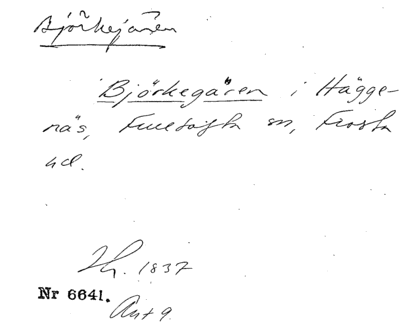 Björkejären
Björkegären i Hägge-
näs, Fulltofta sn, Frosta
hd.
Th. 1837
Nr 6641.
Ant 9